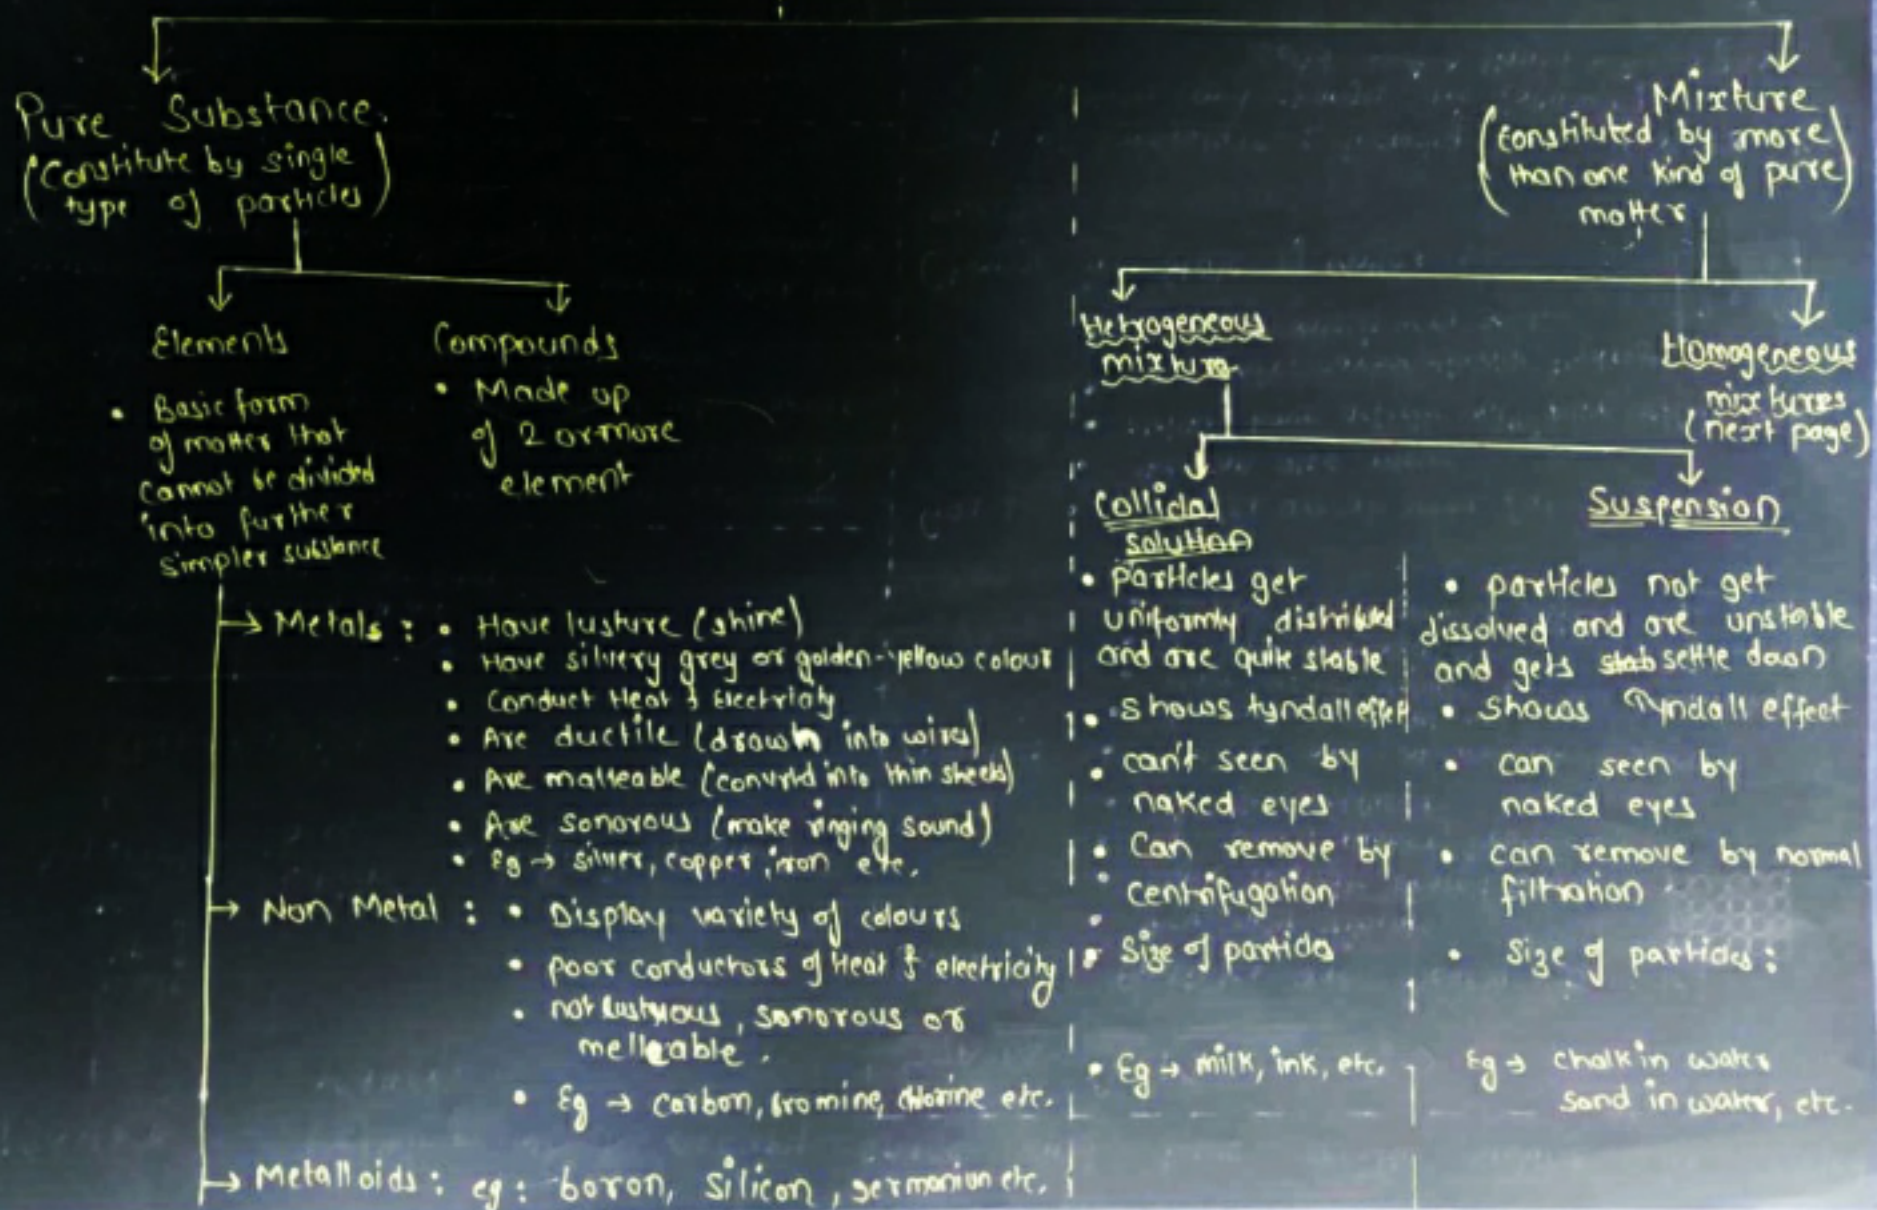 Pure Substance.
(Constitute by single
type of particles)
Elements
• Basic form
of matter that
cannot be divided
into further
simpler substance
Compounds
• Made up
of 2 or more
element
→ Metals : • Have lusture (shine)
• Have silvery grey or golden-yellow colour
• Conduct Heat & Electricity
• Are ductile (drawn into wires)
• Are malleable (convrtd into thin sheets)
• Are sonorous (make ringing sound)
• Eg → silver, copper, iron etc.
→ Non Metal : • Display variety of colours
• poor conductors of Heat & electricity
• not lustrous, sonorous or
melleable.
• Eg → carbon, bromine, chlorine etc.
→ Metalloids : eg : boron, silicon, germanium etc.
Mixture
(constituted by more
than one kind of pure
matter)
Hetrogeneous
mixture
Homogeneous
mixtures
(next page)
Collidal
solution
• particles get
uniformly distributed
and are quite stable
• shows tyndall effect
• can't seen by
naked eyes
• Can remove by
centrifugation
• Size of particles
• Eg → milk, ink, etc.
Suspension
• particles not get
dissolved and are unstable
and gets settle down
• shows Tyndall effect
• can seen by
naked eyes
• can remove by normal
filtration
• Size of particles :
Eg → chalk in water
sand in water, etc.